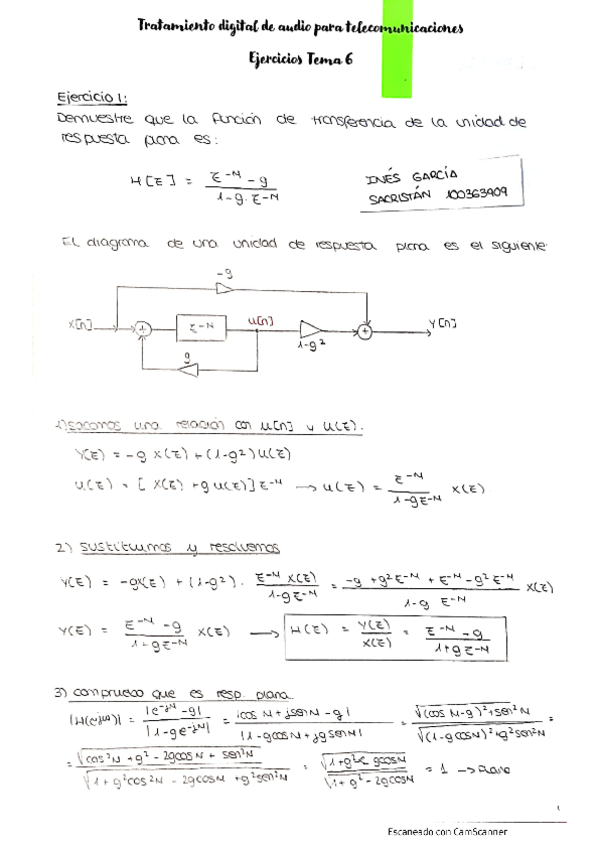 Tratamiento digital de audio para telecomunicaciones
Ejercicios Tema 6
Ejercicio 1:
Demuestre que la función de transferencia de la unidad de
respuesta plana es:
H[z] = (z^-N - g) / (1 - g·z^-N)
INÉS GARCÍA
SACRISTÁN 100363909
El diagrama de una unidad de respuesta plana es el siguiente:
-g
x[n] + z^-N u[n] 1-g² + y[n]
g
1) Sacamos una relación con u[n] y U(z).
Y(z) = -g X(z) + (1-g²) U(z)
U(z) = [X(z) + g U(z)] z^-N → U(z) = z^-N / (1 - g z^-N) X(z)
2) Sustituimos y resolvemos
Y(z) = -gX(z) + (1-g²) · z^-N X(z) / (1 - g z^-N) = (-g + g² z^-N + z^-N - g² z^-N) / (1 - g z^-N) X(z)
Y(z) = (z^-N - g) / (1 - g z^-N) X(z) → H(z) = Y(z) / X(z) = (z^-N - g) / (1 + g z^-N)
3) Compruebo que es resp. plana
|H(e^jω)| = |e^-jN - g| / |1 - g e^-jN| = |cos N + j sen N - g| / |1 - g cos N + j g sen N| = √((cos N - g)² + sen² N) / √((1 - g cos N)² + g² sen² N) =
= √(cos² N + g² - 2g cos N + sen² N) / √(1 + g² cos² N - 2g cos N + g² sen² N) = √(1 + g² - 2 g cos N) / √(1 + g² - 2g cos N) = 1 → Plana
1
Escaneado con CamScanner